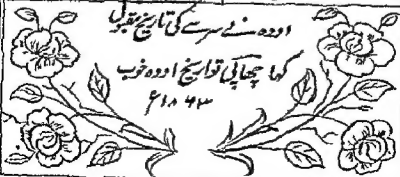 اودہ نئے سرسے کی تاریخ مقبول
کہا چھاپی تواریخ اودہ خوب
۱۸۶۳ء